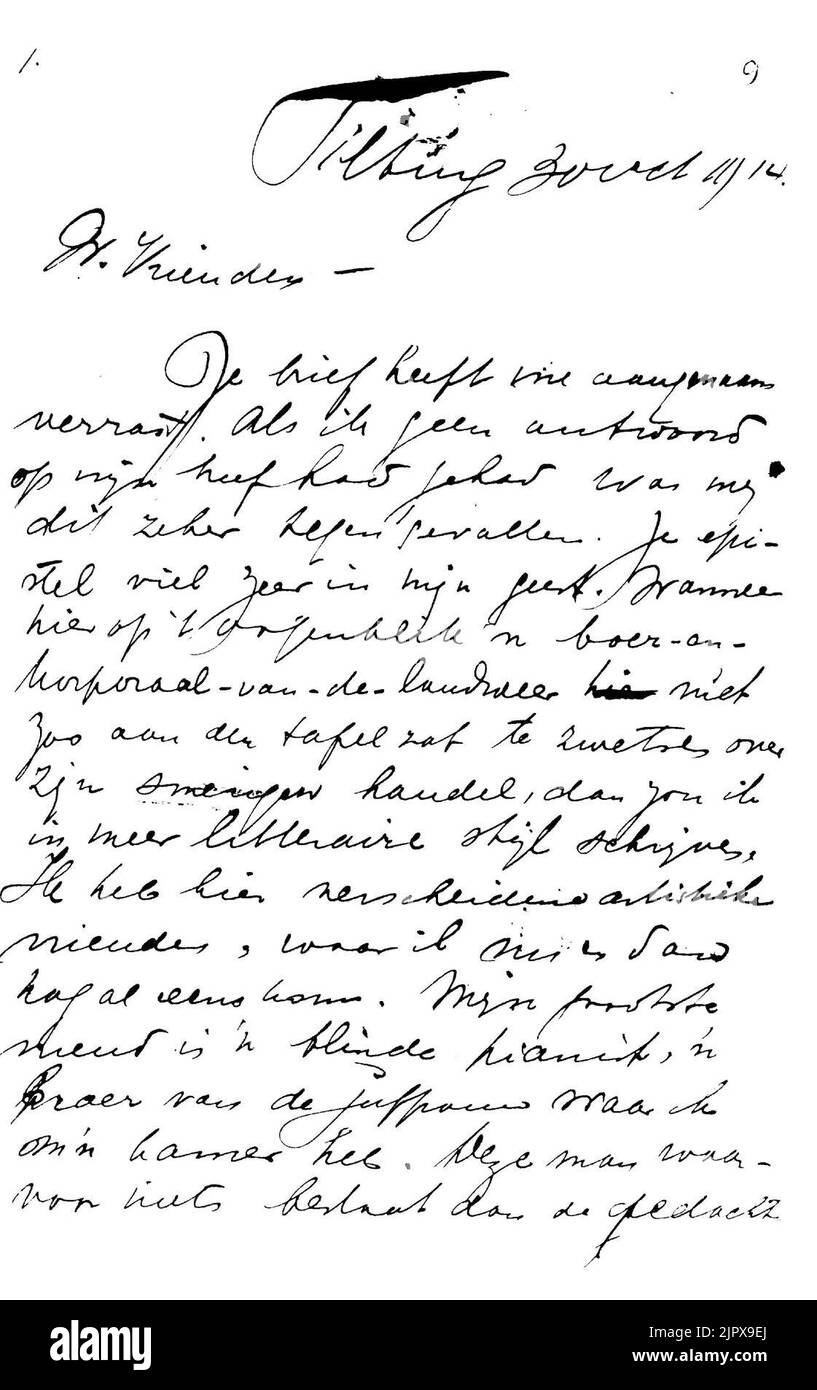 1. 9
Tilburg 30 oct 1914.
W. Vrienden —
Je brief heeft me aangenaam
verrast. Als ik geen antwoord
op mijn brief had gehad was mij
dit zeker tegengevallen. Je epi-
stel viel zeer in mijn geest. Wanneer
hier op 't oogenblik 'n boer-en-
korporaal-van-de-landweer niet
zoo aan den tafel zat te zwetsen over
zijn handel, dan zou ik
in meer litteraire stijl schrijven.
Ik heb hier verscheidene artistieke
vrienden, waar ik nu en dan
nog al eens kom. Mijn grootste
vriend is 'n blinde pianist, 'n
broer van de juffrouw waar ik
om'n kamer heb. Deze man waar-
voor niets bestaat dan de gedacht
alamy
Image ID: 2JPX9EJ
www.alamy.com